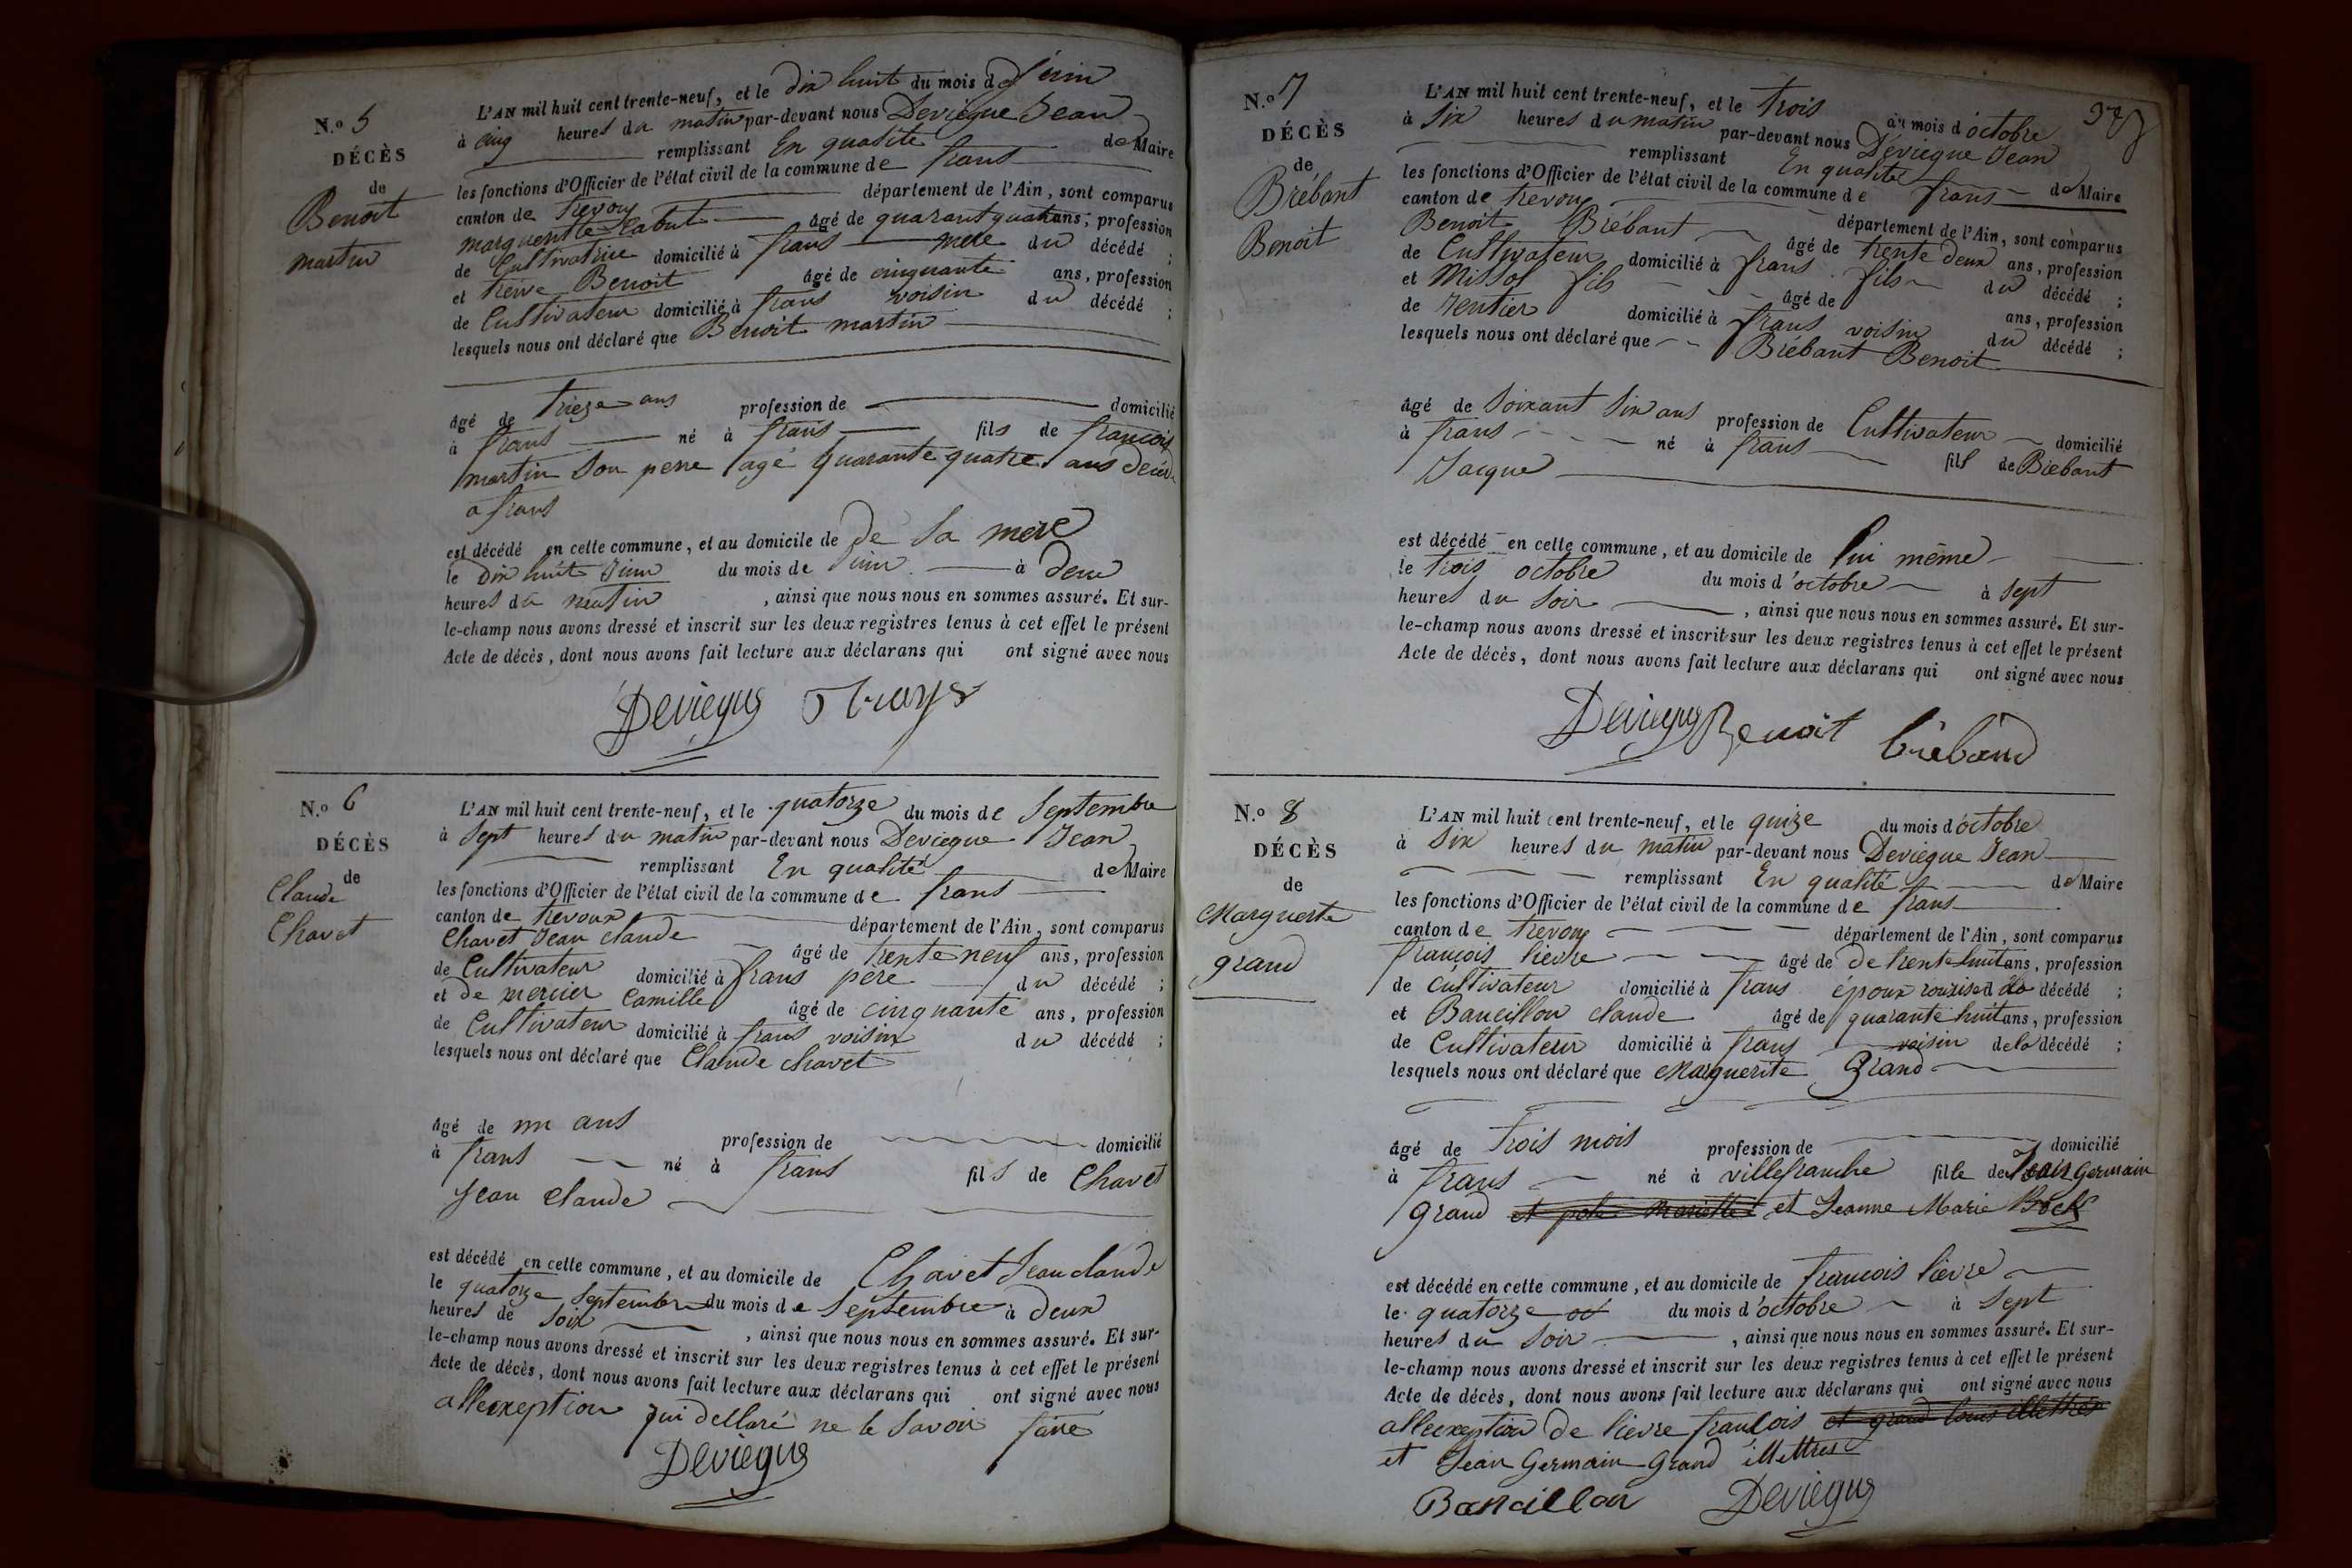 N.º 5
DÉCÈS
de
Benoit
martin
L'AN mil huit cent trente-neuf, et le dix huit du mois de Juin
à cinq heures du matin par-devant nous Deviegue Jean
remplissant En qualité de Maire
les fonctions d'Officier de l'état civil de la commune de frans
canton de trevoux département de l'Ain, sont comparus
margueritte Labut âgé de quarant quatre ans, profession
de Cultivatrice domicilié à frans mere du décédé ;
et treive Benoit âgé de cinquante ans, profession
de Cultivateur domicilié à frans voisin du décédé ;
lesquels nous ont déclaré que Benoit martin
âgé de trieze ans profession de domicilié
à frans né à frans fils de francois
martin son pere agé quarante quatre ans
a frans
est décédé en cette commune, et au domicile de de Sa mere
le Dix huit Juin du mois de Juin à deux
heures du matin , ainsi que nous nous en sommes assuré. Et sur-
le-champ nous avons dressé et inscrit sur les deux registres tenus à cet effet le présent
Acte de décès, dont nous avons fait lecture aux déclarans qui ont signé avec nous
Deviegue
N.º 6
DÉCÈS
de
Claude
Chavet
L'AN mil huit cent trente-neuf, et le quatorze du mois de Septembre
à Sept heures du matin par-devant nous Deviegue Jean
remplissant En qualité de Maire
les fonctions d'Officier de l'état civil de la commune de frans
canton de trevoux département de l'Ain, sont comparus
Chavet Jean claude âgé de trente neuf ans, profession
de Cultivateur domicilié à frans père du décédé ;
et de mercier Camille âgé de cinquante ans, profession
de Cultivateur domicilié à frans voisin du décédé ;
lesquels nous ont déclaré que Claude chavet
âgé de un ans profession de domicilié
à frans né à frans fils de Chavet
Jean Claude
est décédé en cette commune, et au domicile de Chavet Jean claude
le quatorze Septembre du mois de Septembre à deux
heures de Soir , ainsi que nous nous en sommes assuré. Et sur-
le-champ nous avons dressé et inscrit sur les deux registres tenus à cet effet le présent
Acte de décès, dont nous avons fait lecture aux déclarans qui ont signé avec nous
allexeption qui dellaré ne le Savoir faire
Deviegue
N.º 7
DÉCÈS
de
Brébant
Benoit
L'AN mil huit cent trente-neuf, et le trois du mois d'octobre
à Six heures du matin par-devant nous Deviegue Jean
remplissant En qualité de Maire
les fonctions d'Officier de l'état civil de la commune de frans
canton de trevoux département de l'Ain, sont comparus
Benoit Brébant âgé de trente deux ans, profession
de Cultivateur domicilié à frans fils du décédé ;
et Missol fils âgé de ans, profession
de rentier domicilié à frans voisin du décédé ;
lesquels nous ont déclaré que Brébant Benoit
âgé de Soixant Six ans profession de Cultivateur domicilié
à frans né à frans fils de Brebant
Jacque
est décédé en cette commune, et au domicile de lui même
le trois octobre du mois d'octobre à Sept
heures du Soir , ainsi que nous nous en sommes assuré. Et sur-
le-champ nous avons dressé et inscrit sur les deux registres tenus à cet effet le présent
Acte de décès, dont nous avons fait lecture aux déclarans qui ont signé avec nous
Deviegue Benoit breband
N.º 8
DÉCÈS
de
Marguerte
grand
L'AN mil huit cent trente-neuf, et le quize du mois d'octobre
à Six heures du matin par-devant nous Deviegue Jean
remplissant En qualité de Maire
les fonctions d'Officier de l'état civil de la commune de frans
canton de trevoux département de l'Ain, sont comparus
françois lievre âgé de de trente huit ans, profession
de cultivateur domicilié à frans époux décédé ;
et Bancillon claude âgé de quarante huit ans, profession
de Cultivateur domicilié à frans voisin de la décédé ;
lesquels nous ont déclaré que Marguerite Grand
âgé de trois mois profession de domicilié
à frans né à villefranche fille de Jean Germain
grand et Jeanne Marie
est décédé en cette commune, et au domicile de francois lievre
le quatorze du mois d'octobre à Sept
heures du Soir , ainsi que nous nous en sommes assuré. Et sur-
le-champ nous avons dressé et inscrit sur les deux registres tenus à cet effet le présent
Acte de décès, dont nous avons fait lecture aux déclarans qui ont signé avec nous
allexeption de lievre francois et grand louis illettrés
et Jean Germain Grand illettres
Bancillon Deviegue